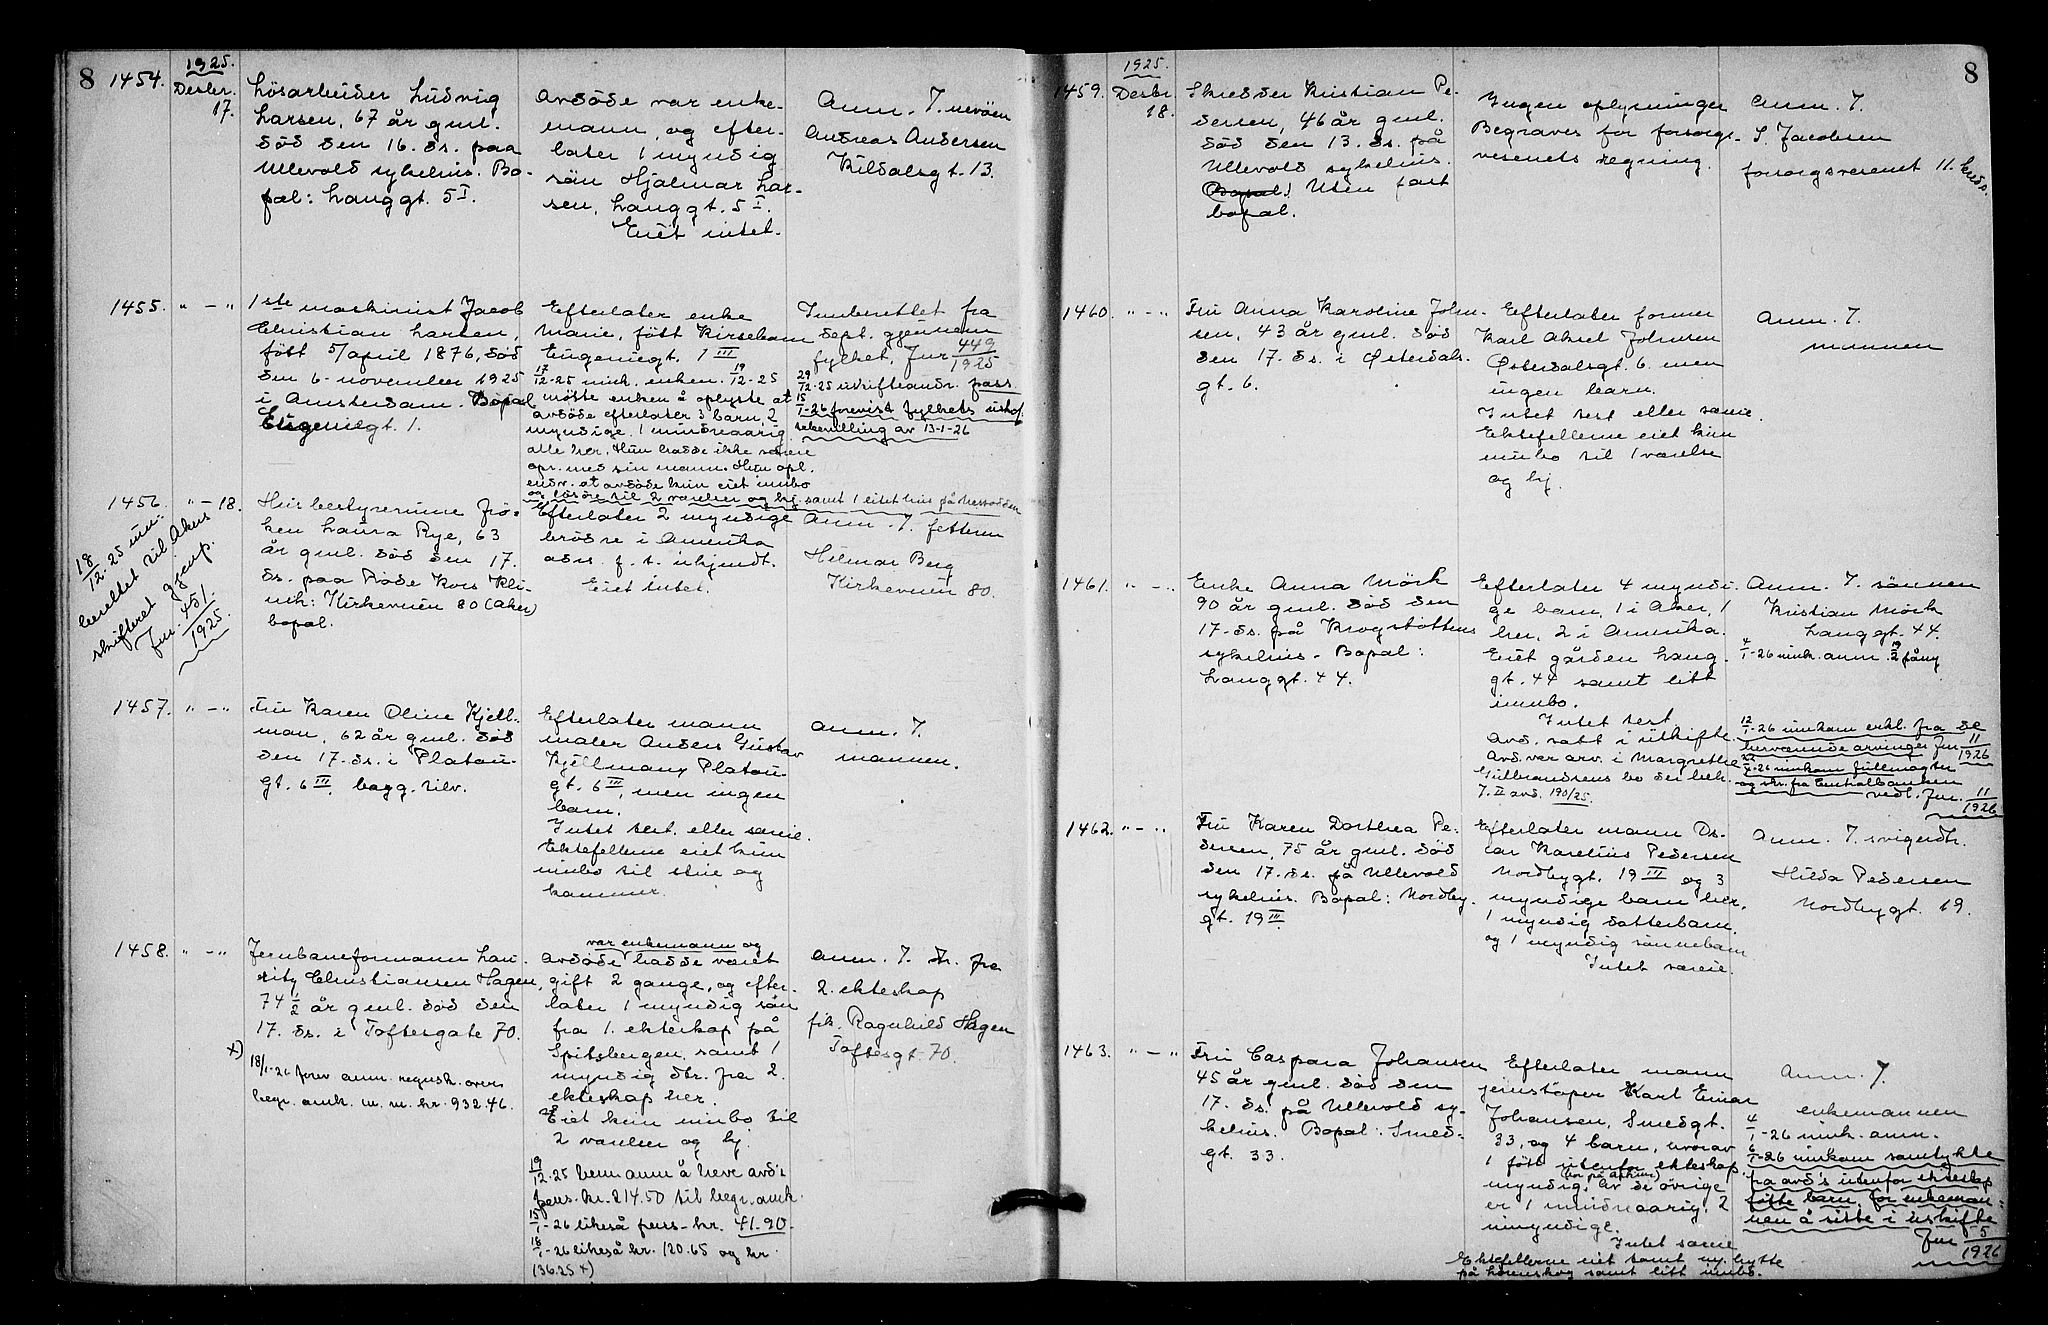 8
1925.
1454.
Desbr.
17.
Lösarbeider Ludvig
Larsen, 67 år gml.
död den 16. ds. paa
Ullevold sykehus. Bo-
pæl: Langgt. 5 I.
Avdöde var enke-
mann, og efter-
later 1 myndig
sön Hjalmar Lar-
sen, Langgt. 5 I.
Eiet intet.
Anm. J. nevöen
Andreas Andersen
Kildalsgt. 13.
1455. " - "
1ste maskinist Jacob
Christian Larsen,
født 5/april 1876, död
den 6. november 1925
i Amsterdam. Bopæl
Eugeniegt. 1.
Efterlater enke
Marie, født Kirsebom
Eugeniegt. 1 III
17/12-25 innk. enken. 19/12-25
mötte enken å oplyste at
avdöde efterlater 3 barn, 2
myndige, 1 mindreaarig
alle her. Hun hadde ikke særeie
opr. med sin mann. Hun opl.
endv. at avdöde kun eiet innbo
og lösöre til 2 værelser og kj. samt 1 litet hus på Nesodden
Innberettet fra
sept. gjennem
fylket, Jnr 449/1925
29/12-25 uskifteandr. pass.
15/1-26 forevist fylkets uskif.
bevilling av 13-1-26
1456. " - 18.
18/12-25 inn-
berettet til Akers
skifteret gjenp.
Jnr. 451/1925.
Husbestyrerinne frö-
ken Laura Rye, 63
år gml. död den 17.
ds. paa Röde Kors Kli-
nik: Kirkeveien 80 (Aker)
bopæl.
Efterlater 2 myndige
brödre i Amerika
adrs. f. t. ukjendt.
Eiet intet.
Anm. J. fetteren
Hilmar Berg
Kirkeveien 80.
1457. " - "
Fru Karen Oline Kjell-
man, 62 år gml. död
den 17. ds. i Platou-
gt. 6 III, bagg. tilv.
Efterlater mann
maler Anders Gustav
Kjellmann Platou-
gt. 6 III, men ingen
barn.
Intet test. eller særeie.
Ektefellerne eiet kun
innbo til stue og
kammer.
Anm. J.
mannen.
1458. " - "
Jernbaneformann Lau-
ritz Christiansen Hagen,
74 1/2 år gml. död den
17. ds. i Toftesgate 70.
x) 18/1-26 forev anm. regnsk. over
begr. omk. m. m. kr. 932.46.
var enkemann og
Avdöde hadde været
gift 2 gange, og efter-
later 1 myndig sön
fra 1. ekteskap på
Spitsbergen, samt 1
myndig dtr. fra 2.
ekteskap her.
Eiet kun innbo til
2 værelser og kj.
19/12-25 bem anm å heve avd's
pens. kr. 214.50 til begr. omk.
15/1-26 likeså pens- kr. 41-90-
18/1-26 likeså kr. 120.65 og kr
136.25 x)
Anm. J. dtr. fra
2. ekteskap
frk. Ragnhild Hagen
Toftesgt. 70.
8
1925.
1459. Desbr
18.
Skredder Kristian Pe-
dersen, 46 år gml.
död den 13. ds. på
Ullevold sykehus.
(Bopæl:) Uten fast
bopæl.
Ingen oplysninger
Begraves for forsorgs-
vesenets regning.
Anm. J.
S. Jacobsen
forsorgsvesenet 11. kreds.
1460. " - "
Fru Anna Karoline John-
sen, 43 år gml. död
den 17. ds. i Østerdals-
gt. 6.
Efterlater former
Karl Aksel Johnsen
Østerdalsgt. 6. men
ingen barn.
Intet test eller særeie.
Ektefellerne eiet kun
innbo til 1 værelse
og kj.
Anm. J.
mannen
1461. " - "
Enke Anna Mörk
90 år gml. död den
17. ds. på Krogstöttens
sykehus - Bopæl:
Langgt. 44.
Efterlater 4 myndi-
ge barn, 1 i Aker, 1
her, 2 i Amerika.
Eiet gården Lang-
gt. 44 samt litt
innbo.
Intet test
Avd. satt i uskifte.
Avd. var arv. i Margrethe
Gulbrandsens bo der beh.
7. II avd. 190/25.
Anm. J. sönnen
Kristian Mörk
Langgt. 44.
4/1-26 innk. anm. 19/2 påny
12/1-26 innkom erkl. fra de
herværende arvinger Jnr 11/1926
innkom fullmagter
og skr. fra Centralbanken
vedl. Jnr. 11/1926
1462. " - "
Fru Karen Dorthea Pe-
dersen, 75 år gml. död
den 17. ds. på Ullevold
sykehus. Bopæl: Nordby-
gt. 19 III.
Efterlater mann Os-
car Karelius Pedersen
Nordbygt. 19 III og 3
myndige barn her,
1 myndig datterbarn,
og 1 myndig sönnebarn
Intet særeie.
Anm. J. svigerdtr.
Hilda Pedersen
Nordbygt. 19.
1463. " - "
Fru Caspara Johansen
45 år gml. död den
17. ds. på Ullevold sy-
kehus. Bopæl: Smed-
gt. 33.
Efterlater mann
jernstöper Karl Einar
Johansen, Smedgt.
33, og 4 barn, hvorav
1 född utenfor ekteskap
(bor på Askim)
myndig. Av de övrige
er 1 mindreaarig, 2
umyndige.
Intet særeie
Ektefellerne eiet samt ny hytte
på Lörenskog samt litt innbo.
Anm. J.
enkemannen
4/1-26 innk. anm.
6/1-26 innkom samtykke
fra avd's utenfor ekteskap
fötte barn for enkeman-
nen å sitte i uskifte
Jnr 5/1926